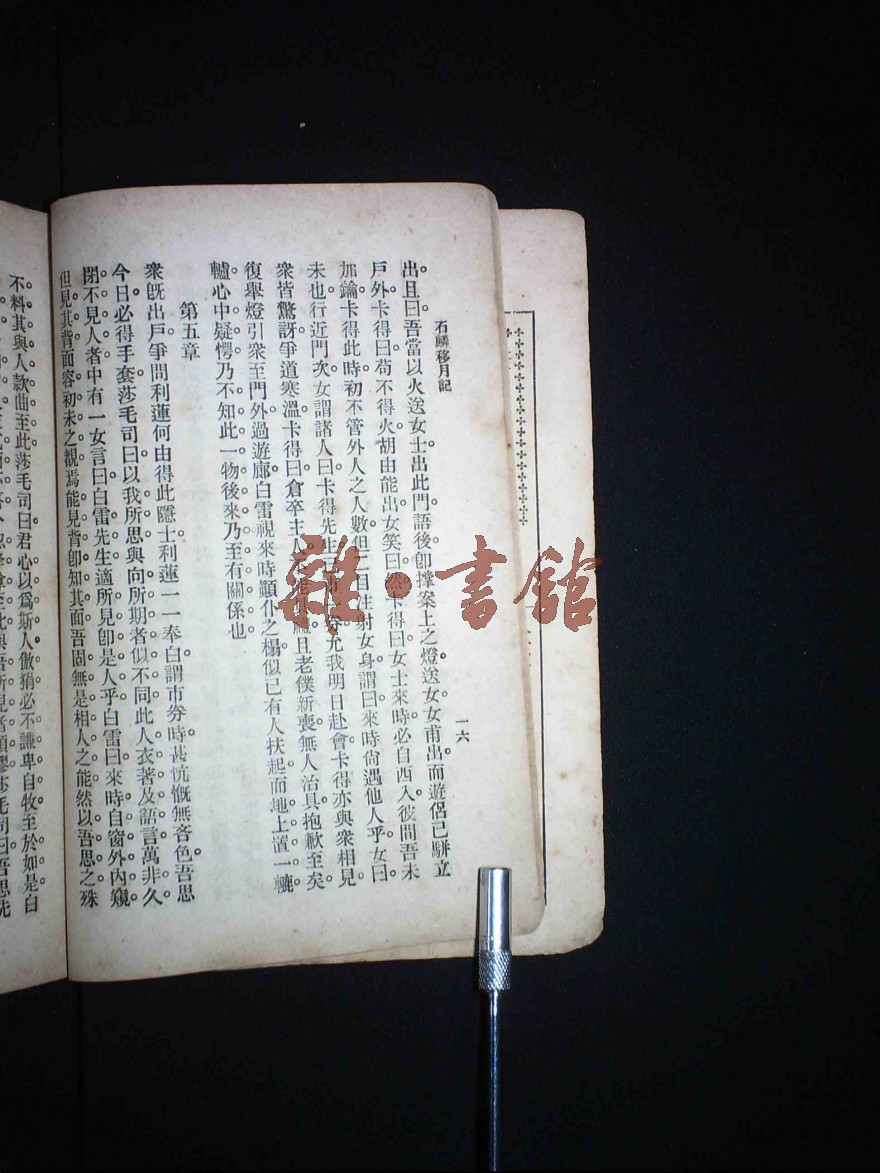 石麟移月記
一六
出。且曰。吾當以火送女士出此門。語後卽擎案上之燈送女。女甫出。而遊侶已駢立
戶外。卡得曰。苟不得火。胡由能出。女笑曰。然。卡得曰。女士來時。必自西入。彼間吾未
加鑰。卡得此時初不管外人之人數。但二目注射女身。謂曰。來時尙遇他人乎。女曰。
未也。行近門次。女謂諸人曰。卡得先生 允我明日赴會。卡得亦與衆相見。
衆皆驚訝。爭道寒溫。卡得曰。倉卒主人 且老僕新喪。無人治具。抱歉至矣。
復舉燈引衆至門外。過遊廊。白雷視來時顚仆之榻。似已有人扶起。而地上置一轆
轤。心中疑愕。乃不知此一物後來乃至有關係也。
第五章
衆旣出戶。爭問利蓮何由得此隱士。利蓮一一奉白。謂市券時甚忼慨無吝色。吾思
今日必得手套。莎毛司曰。以我所思。與向所期者似不同。此人衣著及語言。萬非久
閉不見人者。中有一女言曰。白雷先生適所見卽是人乎。白雷曰。來時自窗外內窺。
但見其背。面容初未之覩。焉能見背卽知其面。吾固無是相人之能。然以吾思之。殊
不料其與人款曲至此。莎毛司曰。君心以爲斯人傲狷。必不謙卑自牧至於如是。白
雜·書館